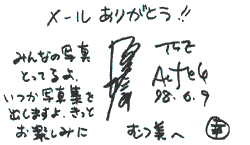 メールありがとう!!
みんなの写真
とってるよ.
いつか写真集を
出しますよ.きっと
お楽しみに
98.6.9
むつ美へ